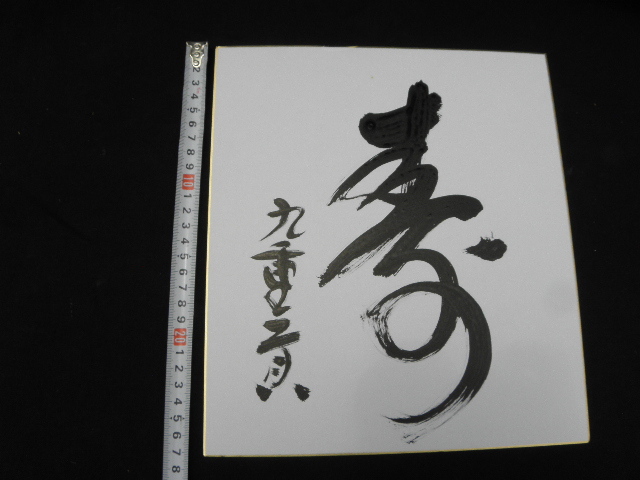 寿
九重貢
2 3 4 5 6 7 8 9 10 1 2 3 4 5 6 7 8 9 20 1 2 3 4 5 6 7 8